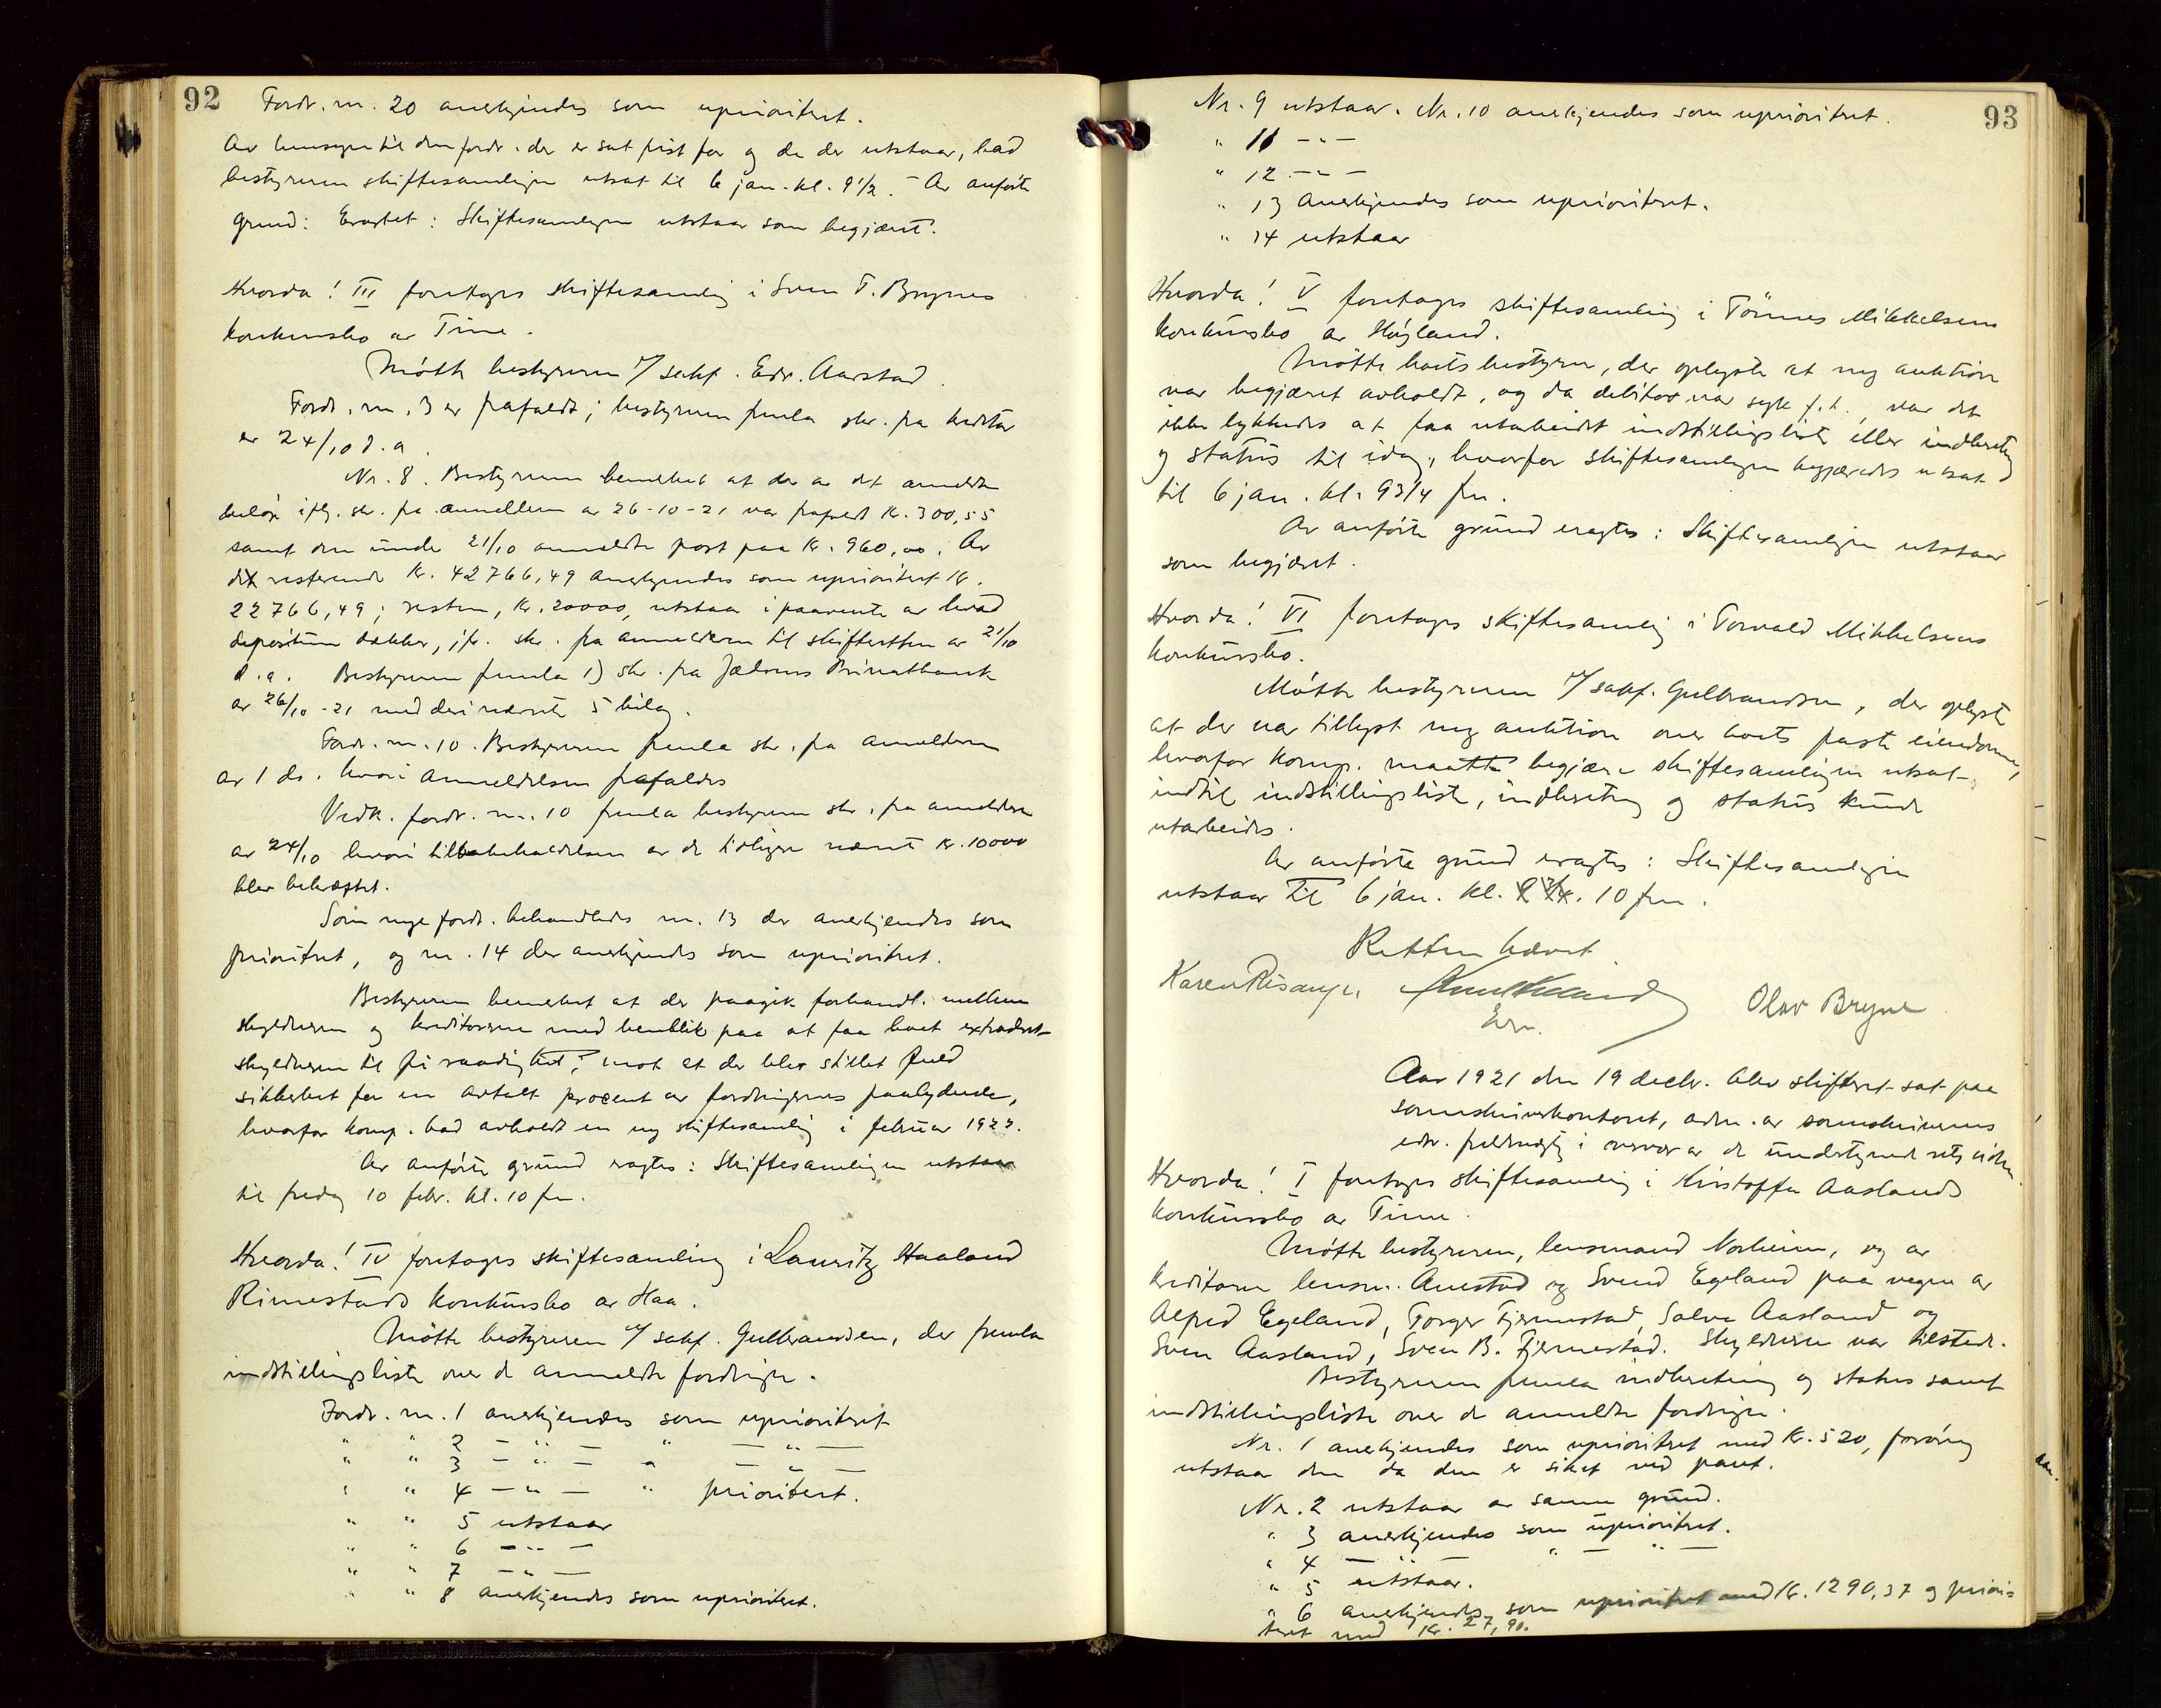 92
Fordr. nr. 20 anerkjendes som uprioritert.
Av hensyn til den fordr. der er sat frist for og de der utstaar, bad
bestyreren skiftesamlingen utsat til 6 jan. kl. 9 1/2. – Av anförte
grund: Eragtet: Skiftesamlingen utstaar som begjært.
Hvorda! III foretoges skiftesamling i Sven T. Brynes
konkursbo av Time.
Mötte bestyreren v/ sakf. Edv. Aarstad.
Fordr. nr. 3 er frafaldt; bestyreren fremla skr. fra kreditor
av 24/10 d.a.
Nr. 8. Bestyreren bemerket at der av det anmeldte
belöp iflg. skr. fra anmelderen av 26-10-21 var frafaldt Kr. 300,55
samt den under 21/10 anmeldte post paa Kr. 960,00. Av
det resterende Kr. 42766,49 anerkjendes som uprioritert Kr.
22766,49; resten, Kr. 20000, utstaar i paavente av hvad
depositum dækker, jfr. skr. fra anmelderen til skifteretten av 21/10
d.a. Bestyreren fremla 1) skr. fra Jæderens Privatbank
av 26/10-21 med deri nævnte 5 bilag.
Fordr. nr. 10. Bestyreren fremla skr. fra anmelderen
av 1 ds. hvori anmeldelsen frafaldes
Vedk. fordr. nr. 10 fremla bestyreren skr. fra anmelderen
av 24/10 hvori tilbakeholdelsen av de tidligere nævnte Kr. 10000
blev bekræftet.
Som nye fordr. behandledes nr. 13 der anerkjendes som
prioritert, og nr. 14 der anerkjendes som uprioritert.
Bestyreren bemerket at der paagik forhandl. mellem
skyldneren og kreditorerne med henblik paa at faa boet extradert
skyldneren til fri raadighet, mot at der blev stillet fuld
sikkerhet for en avtalt procent av fordringernes paalydende,
hvorfor komp. bad avholdt en ny skiftesamling i februar 1922.
Av anförte grund eragtes: Skiftesamlingen utstaar
til fredag 10 febr. kl. 10 fm.
Hvorda! IV foretoges skiftesamling i Lauritz Haaland
Rimestads konkursbo av Haa.
Mötte bestyreren v/ sakf. Gulbrandsen, der fremla
indstillingsliste over de anmeldte fordringer.
Fordr. nr. 1 anerkjendes som uprioritert
" " 2 – " – " – " –
" " 3 – " – " – " –
" " 4 – " – " prioritert.
" " 5 utstaar
" " 6 – " –
" " 7 – " –
" " 8 anerkjendes som uprioritert.
93
Nr. 9 utstaar. Nr. 10 anerkjendes som uprioritert.
" 11 – " –
" 12 – " –
" 13 anerkjendes som uprioritert.
" 14 utstaar
Hvorda! V foretoges skiftesamling i Tönnes Mikkelsens
konkursbo av Högland.
Mötte boets bestyrer, der oplyste at ny auktion
var begjæret avholdt, og da debitor var syk f.t., var det
ikke lykkedes at faa utarbeidet indstillingsliste eller indberetning
og status til idag, hvorfor skiftesamlingen begjæredes utsat
til 6 jan. kl. 9 3/4 fm.
Av anförte grund eragtes: Skiftesamlingen utstaar
som begjæret.
Hvorda! VI foretoges skiftesamling i Torvald Mikkelsens
konkursbo.
Mötte bestyreren v/ sakf. Gulbrandsen, der oplyste
at der var tillyst ny auktion over boets faste eiendomme,
hvorfor komp. maatte begjære skiftesamlingen utsat
indtil indstillingsliste, indberetning og status kunde
utarbeides.
Av anförte grund eragtes: Skiftesamlingen
utstaar til 6 jan. kl. 10 fm.
Retten hævet.
Karen Risanger
Edv.
Olav Bryne
Aar 1921 den 19 decbr. blev skifteret sat paa
sorenskriverkontoret, adm. av sorenskriverens
edv. fuldmægtig i overvær av de undertegnede retsvidner
Hvorda! I foretoges skiftesamling i Kristoffer Aaslands
konkursbo av Time.
Mötte bestyreren, lensmand Norheim, og av
kreditorer lensm. Anestad og Svend Egeland paa vegne av
Alfred Egeland, Torger Fjermestad, Salve Aasland og
Sven Aasland, Sven B. Fjermestad. Skyldneren var tilstede.
Bestyreren fremla indberetning og status samt
indstillingsliste over de anmeldte fordringer.
Nr. 1 anerkjendes som uprioritert med Kr. 520, forövrig
utstaar den da den er sikret ved pant.
Nr. 2 utstaar av samme grund.
" 3 anerkjendes som uprioritert.
" 4 – " – " – " –
" 5 utstaar.
" 6 anerkjendes som uprioritert med Kr. 1290,37 og priori-
tert med Kr. 27,90.